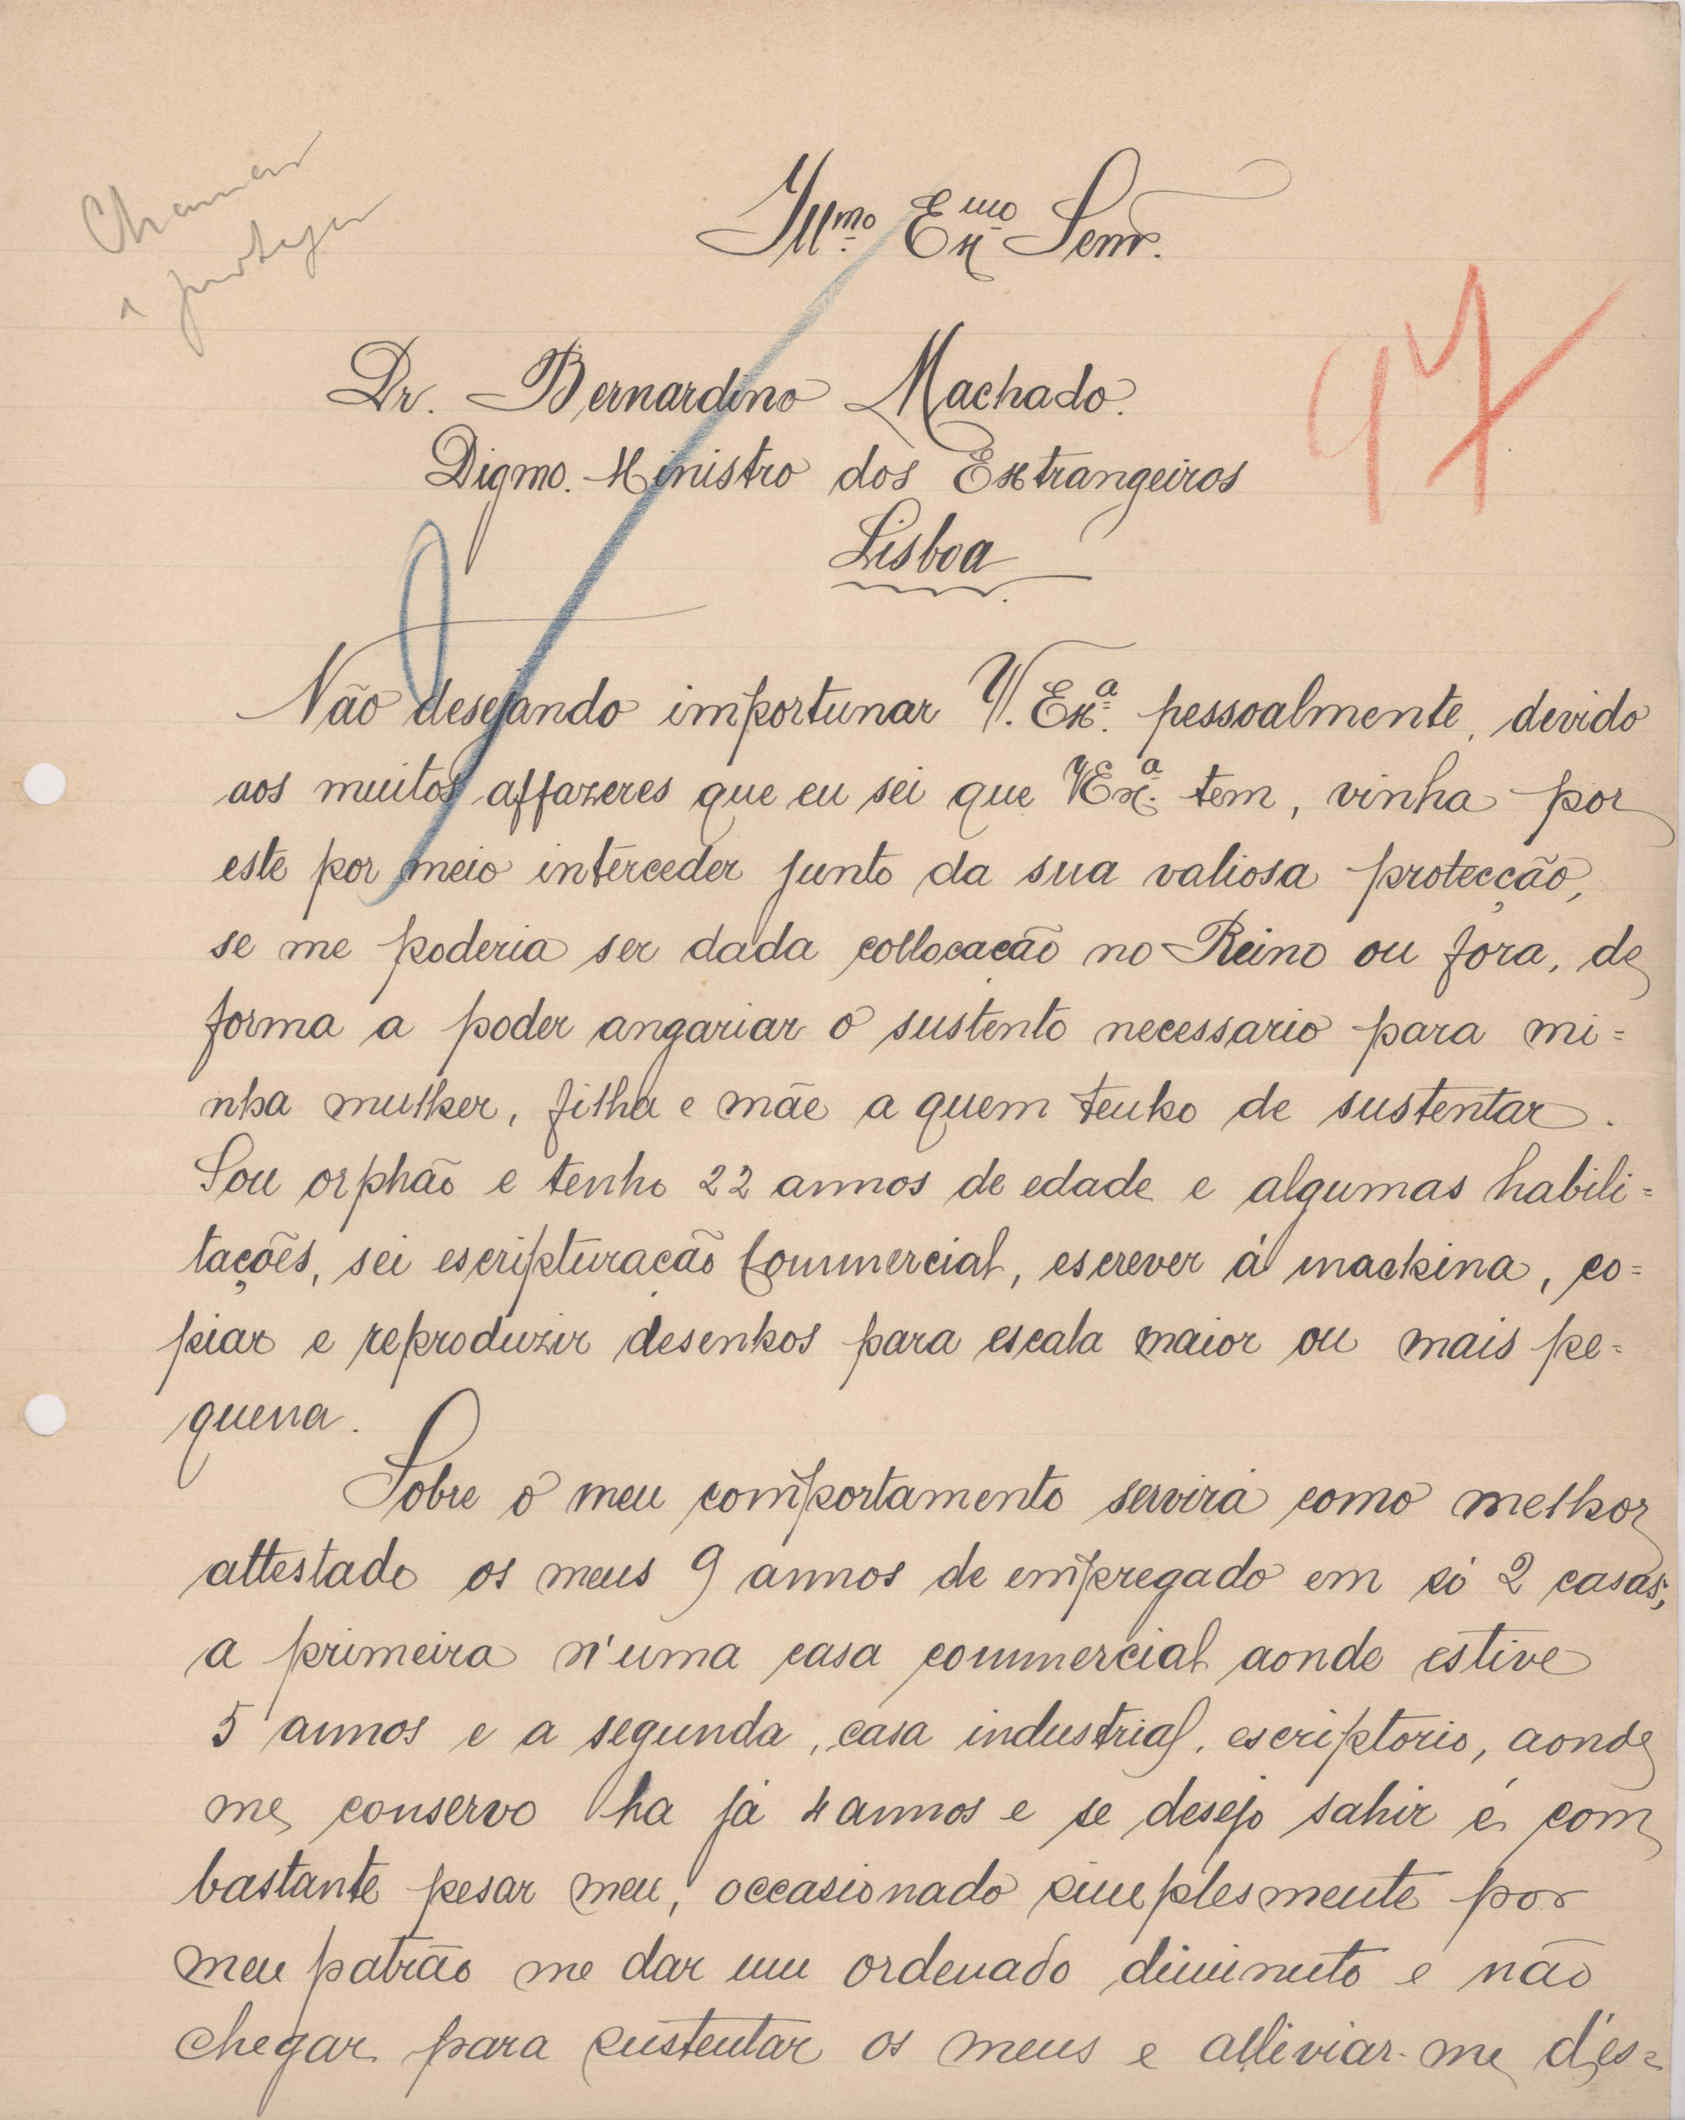 Illmo. Exmo Senr.
97
Dr. Bernardino Machado.
Digmo. Ministro dos Extrangeiros
Lisboa
Não desejando importunar V. Exª. pessoalmente, devido
aos muitos affazeres que eu sei que VExª. tem, vinha por
este por meio interceder junto da sua valiosa protecção,
se me poderia ser dada collocacão no Reino ou fora, de
forma a poder angariar o sustento necessario para mi=
nha mulher, filha e mãe a quem tenho de sustentar.
Sou orphão e tenho 22 annos de edade e algumas habili=
tações, sei escripturacão Commercial, escrever á machina, co=
piar e reproduzir desenhos para escala maior ou mais pe=
quena.
Sobre o meu comportamento servirá como melhor
attestado os meus 9 annos de empregado em só 2 casas;
a primeira n'uma casa commercial aonde estive
5 annos e a segunda, casa industrial, escriptorio, aonde
me conservo ha já 4 annos e se desejo sahir é com
bastante pesar meu, occasionado simplesmente por
meu patrão me dar um ordenado diminuto e não
chegar para sustentar os meus e alliviar-me d'es=